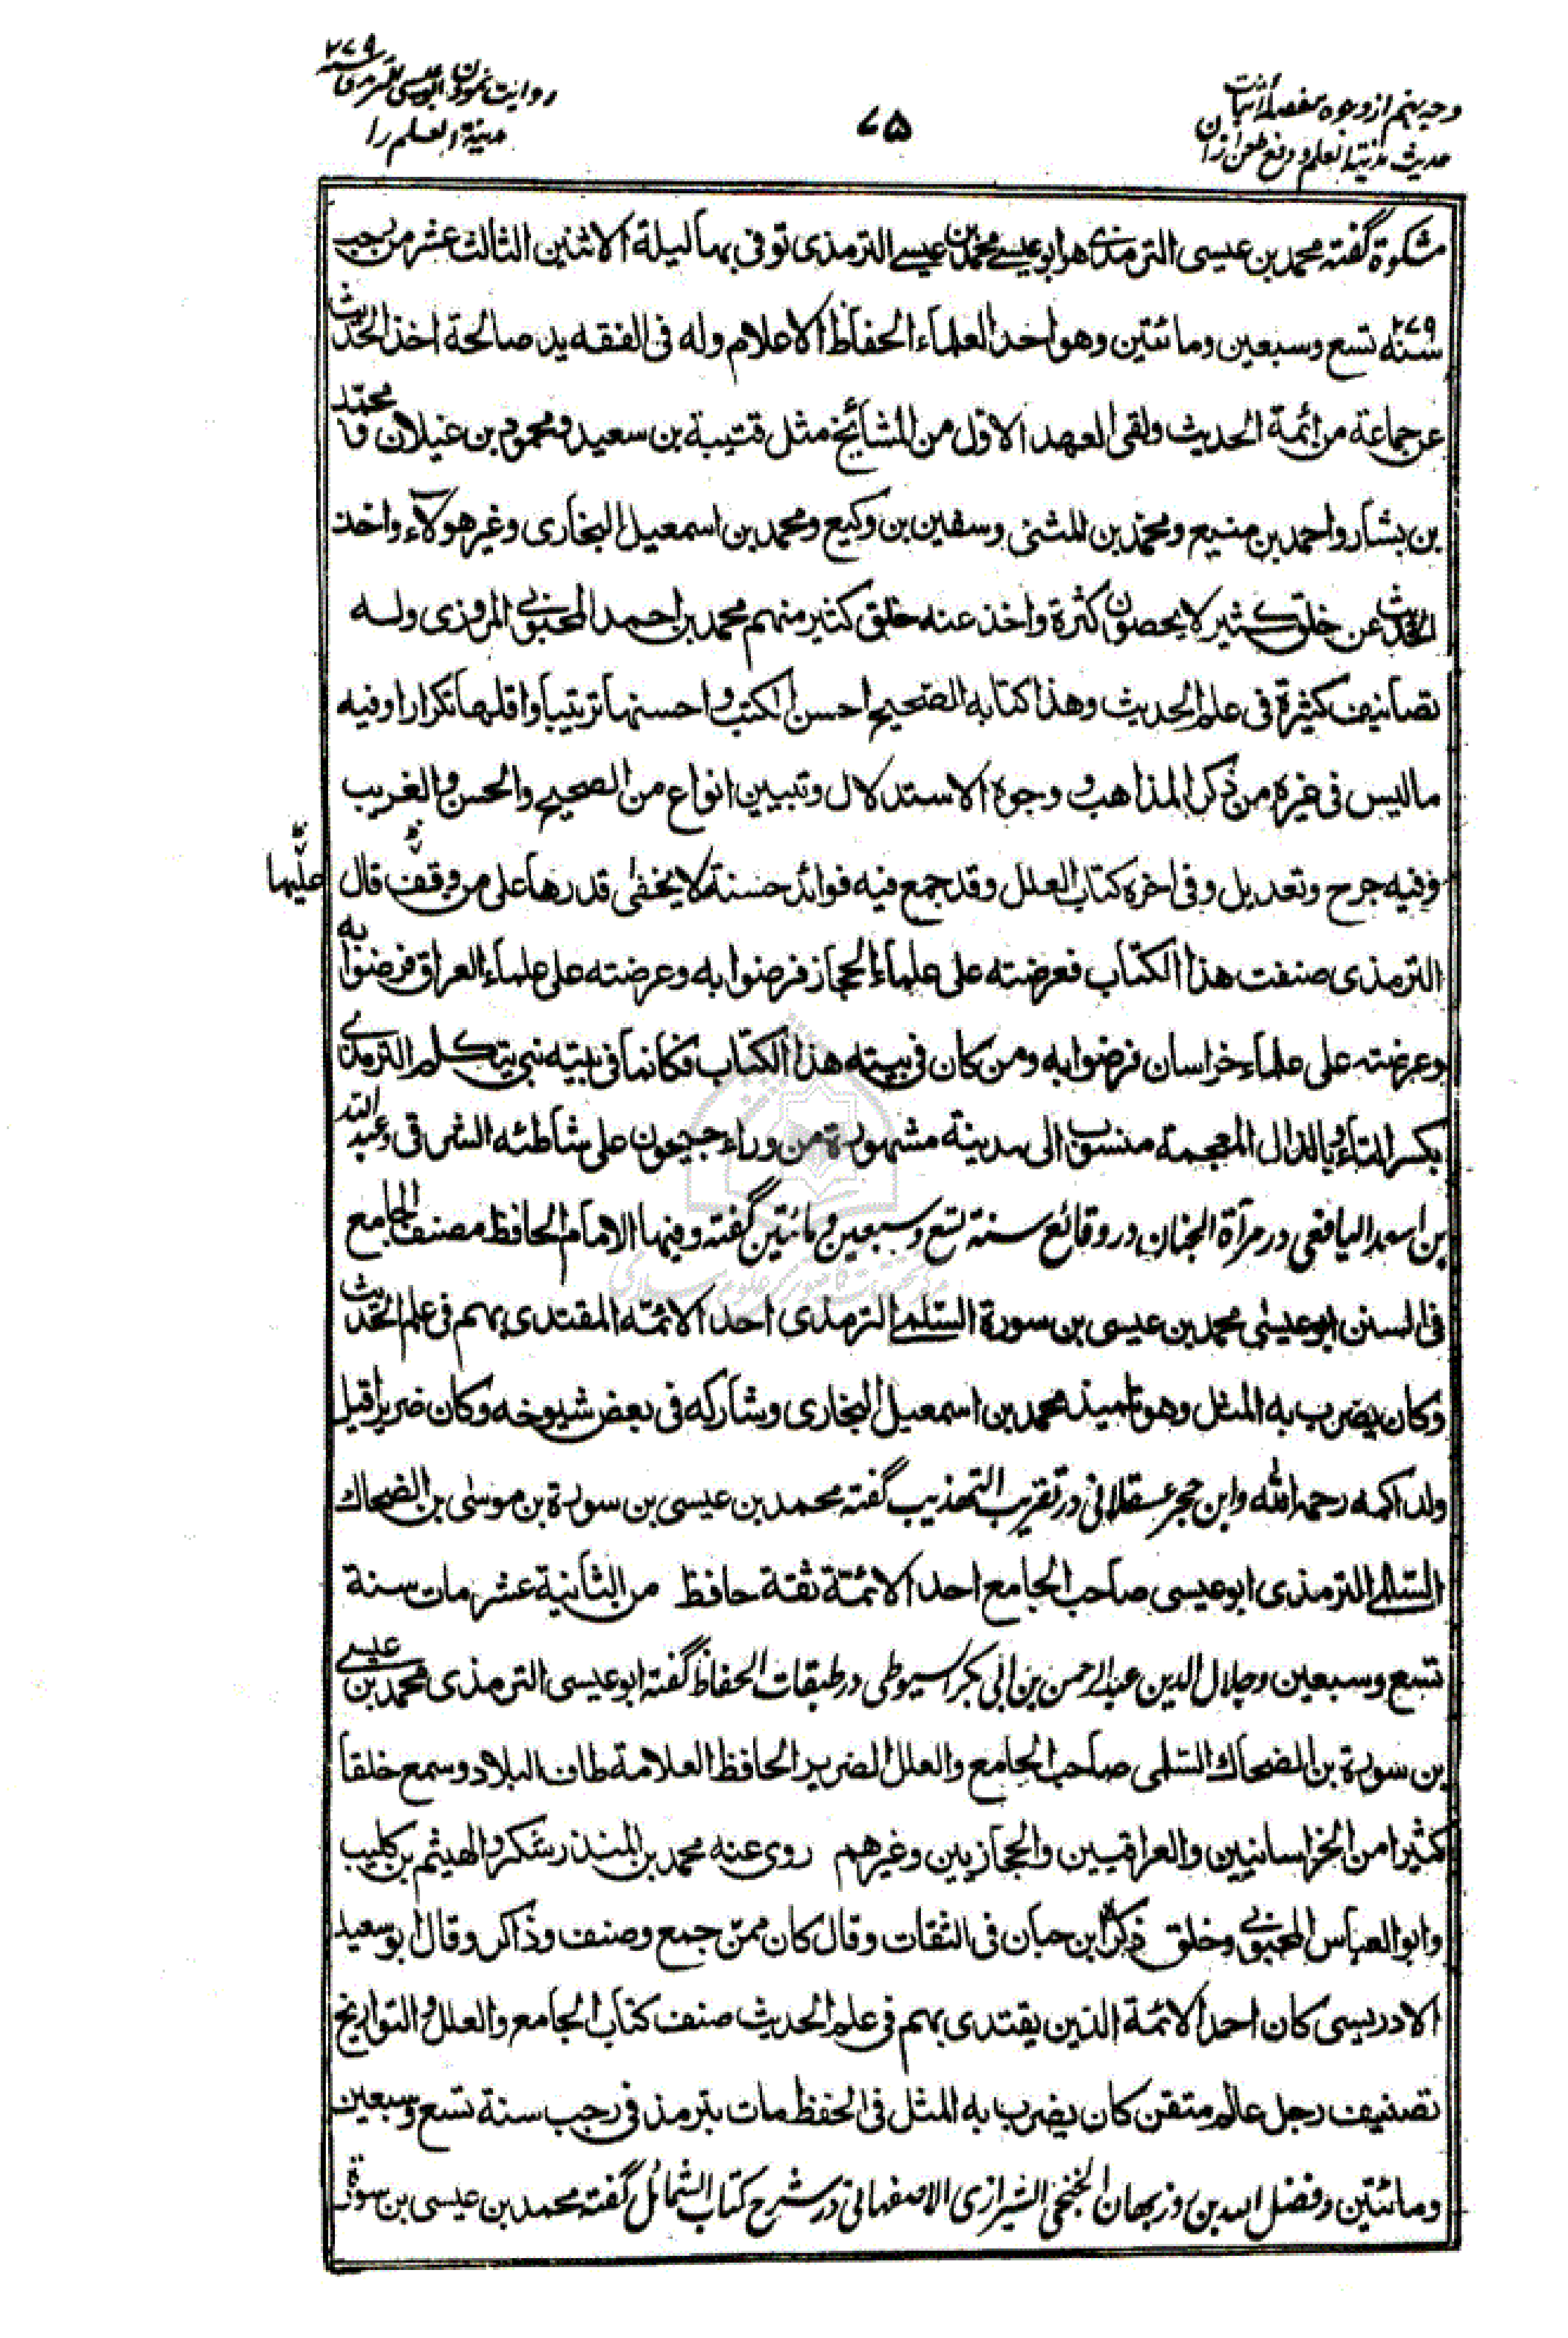 وجه پنجم از وجوه مفصلهٔ اثبات
حدیث مدینة العلم و دفع طعن ازان
۷۵
روایت نمودن ابو عیسی ترمذی ۲۷۹
مدینة العلم را
مشکوة گفته محمد بن عیسی الترمذی هو ابو عیسے محمد بن عیسے الترمذی توفی بها لیلة الاثنین الثالث عشر من رجب
سنه ۲۷۹ تسع وسبعین ومائتین وهو احد العلماء الحفاظ الاعلام وله فی الفقه ید صالحة اخذ الحدیث
عن جماعة من ائمة الحدیث ولقی العهد الاول من المشائخ مثل قتیبة بن سعید ومحمود بن غیلان و محمد
بن بشار واحمد بن منیع ومحمد بن المثنی وسفین بن وکیع ومحمد بن اسمعیل البخاری وغیر هولاء واخذ
الحدیث عن خلق کثیر لا یحصون کثرة واخذ عنه خلق کثیر منهم محمد بن احمد المحبوبی المروزی وله
تصانیف کثیرة فی علم الحدیث وهذا کتابه الصحیح احسن الکتب و احسنها ترتیبا واقلها تکرارا وفیه
ما لیس فی غیره من ذکر المذاهب و وجوه الاستدلال وتبیین انواع من الصحیح والحسن والغریب
وفیه جرح وتعدیل وفی اخره کتاب العلل وقد جمع فیه فوائد حسنة لا یخفی قدرها علی من وقف قال
علیها
الترمذی صنفت هذا الکتاب فعرضته علی علماء الحجاز فرضوا به وعرضته علی علماء العراق فرضوا به
وعرضته علی علماء خراسان فرضوا به ومن کان فی بیته هذا الکتاب فکانما فی بیته نبی یتکلم الترمذی
بکسر التاء و بالذال المعجمة منسوب الی مدینة مشهورة من وراء جیحون علی شاطئه الشرقی وعبد الله
بن اسعد الیافعی در مرآة الجنان در وقائع سنة تسع و سبعین و مائتین گفته وفیها الامام الحافظ مصنف الجامع
فی السنن ابو عیسی محمد بن عیسی بن سورة السلمے الترمذی احد الائمة المقتدی بهم فی علم الحدیث
وکان یضرب به المثل وهو تلمیذ محمد بن اسمعیل البخاری وشارکه فی بعض شیوخه وکان ضریرا قیل
ولد اکمه رحمه الله وابن حجر عسقلانی در تقریب التهذیب گفته محمد بن عیسی بن سورة بن موسی بن الضحاک
السلمے الترمذی ابو عیسی صاحب الجامع احد الائمة ثقة حافظ من الثانیة عشر مات سنة
تسع وسبعین وجلال الدین عبد الرحمن بن ابی بکر السیوطی در طبقات الحفاظ گفته ابو عیسی الترمذی محمد بن عیسے
بن سورة بن الضحاک السلمی صاحب الجامع والعلل الضریر الحافظ العلامة طاف البلاد وسمع خلقا
کثیرا من الخراسانیین والعراقیین والحجازیین وغیرهم روی عنه محمد بن المنذر شکر و الهیثم بن کلیب
وابو العباس المحبوبی وخلق ذکره ابن حبان فی الثقات وقال کان ممن جمع وصنف وذاکر وقال ابو سعید
الادریسی کان احد الائمة الذین یقتدی بهم فی علم الحدیث صنف کتاب الجامع والعلل و التواریخ
تصنیف رجل عالم متقن کان یضرب به المثل فی الحفظ مات بترمذ فی رجب سنة تسع وسبعین
ومائتین وفضل الله بن روزبهان الخنجی الشیرازی الاصفهانی در شرح کتاب الشمائل گفته محمد بن عیسی بن سورة